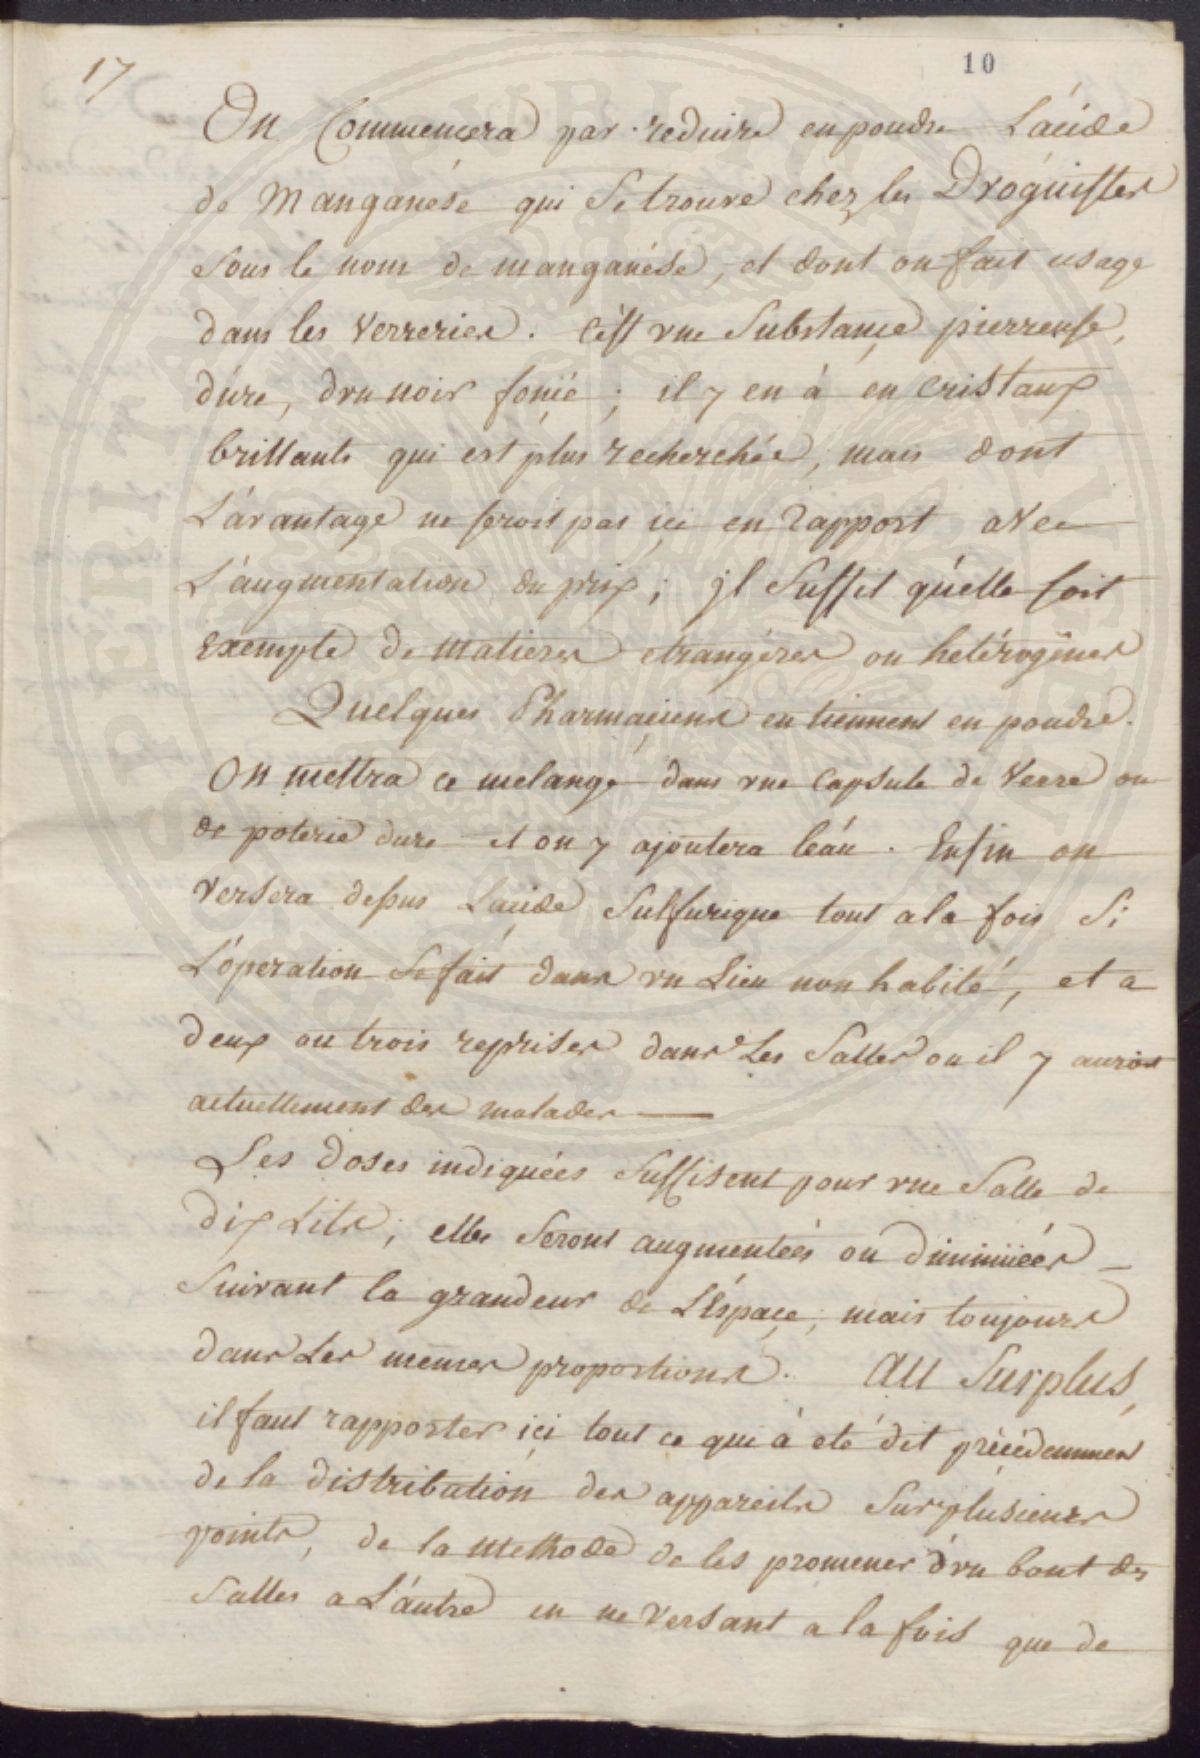 17
10
On Commencera par reduire en poudre L'acide
de Manganése qui Se trouve chez les Droguistes
Sous le nom de manganése, et dont on fait usage
dans les Verreries. C'est vne Substançe pierreuse,
dure, d'vn noir foncé; il y en à en Cristaux
brillants qui est plus recherchée, mais dont
L'avantage ne seroit pas ici en Rapport avec
L'augmentation du prix; jl Suffit qu'elle soit
Exempte de Matieres etrangéres ou hetérogénes
Quelques Pharmaciens en tiennent en poudre.
On mettra ce melange dans vne Capsule de Verre ou
de poterie dure et on y ajoutera l'eau. Enfin on
Versera dessus L'acide Sulfurique tout a la fois Si
L'operation Se fait dans vn Lieu non habité, et a
deux ou trois reprises dans Les Salles ou il y auroit
actuellement des malades —
Les Doses indiquées Suffisent pour vne Salle de
dix Lits; elles Seront augmentées ou diminuées
Suivant la grandeur de L'Espace, mais toujours
dans Les memes proportions. Au Surplus,
il faut rapporter ici tout ce qui à eté dit précédemment
de la distribution des appareils Sur plusieurs
points, de la Methode de les promener d'vn bout des
Salles a L'autre en ne Versant a la fois que de